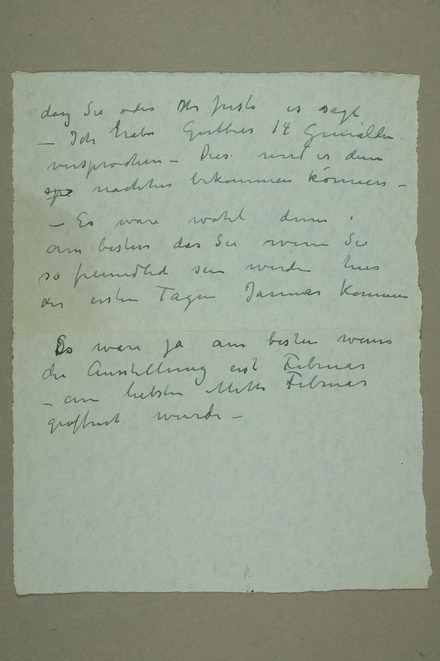 dass Sie oder es sagt
– Ich habe 14 Gemälden
versprochen – Dies wird er dann
spä nachher bekommen können –
– Es ware wohl dann
am besten das Sie wenn Sie
so freundlich sein wurden hier
die ersten Tagen Januar kommen
Es ware ja am besten wenn
die Ausstellung erst Februar
– am liebsten Mitte Februar
geöffnet wurde –